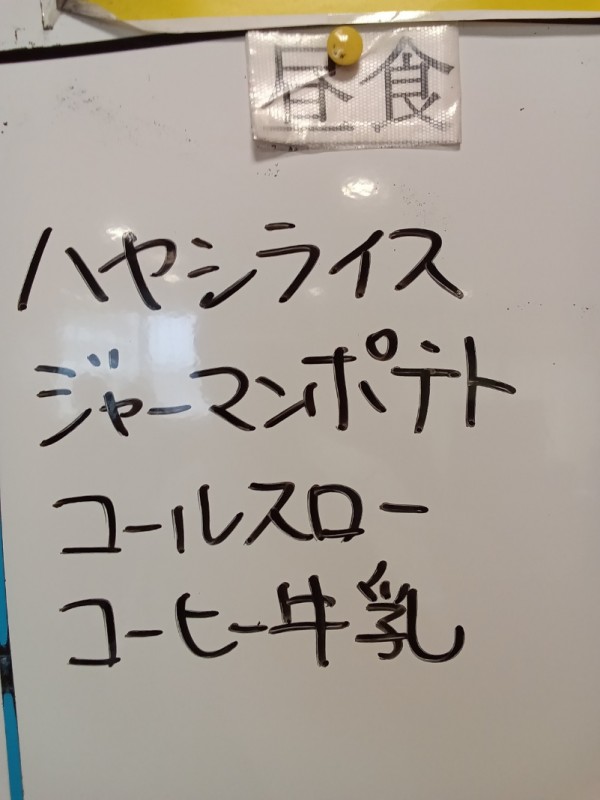 昼食
ハヤシライス
ジャーマンポテト
コールスロー
コーヒー牛乳